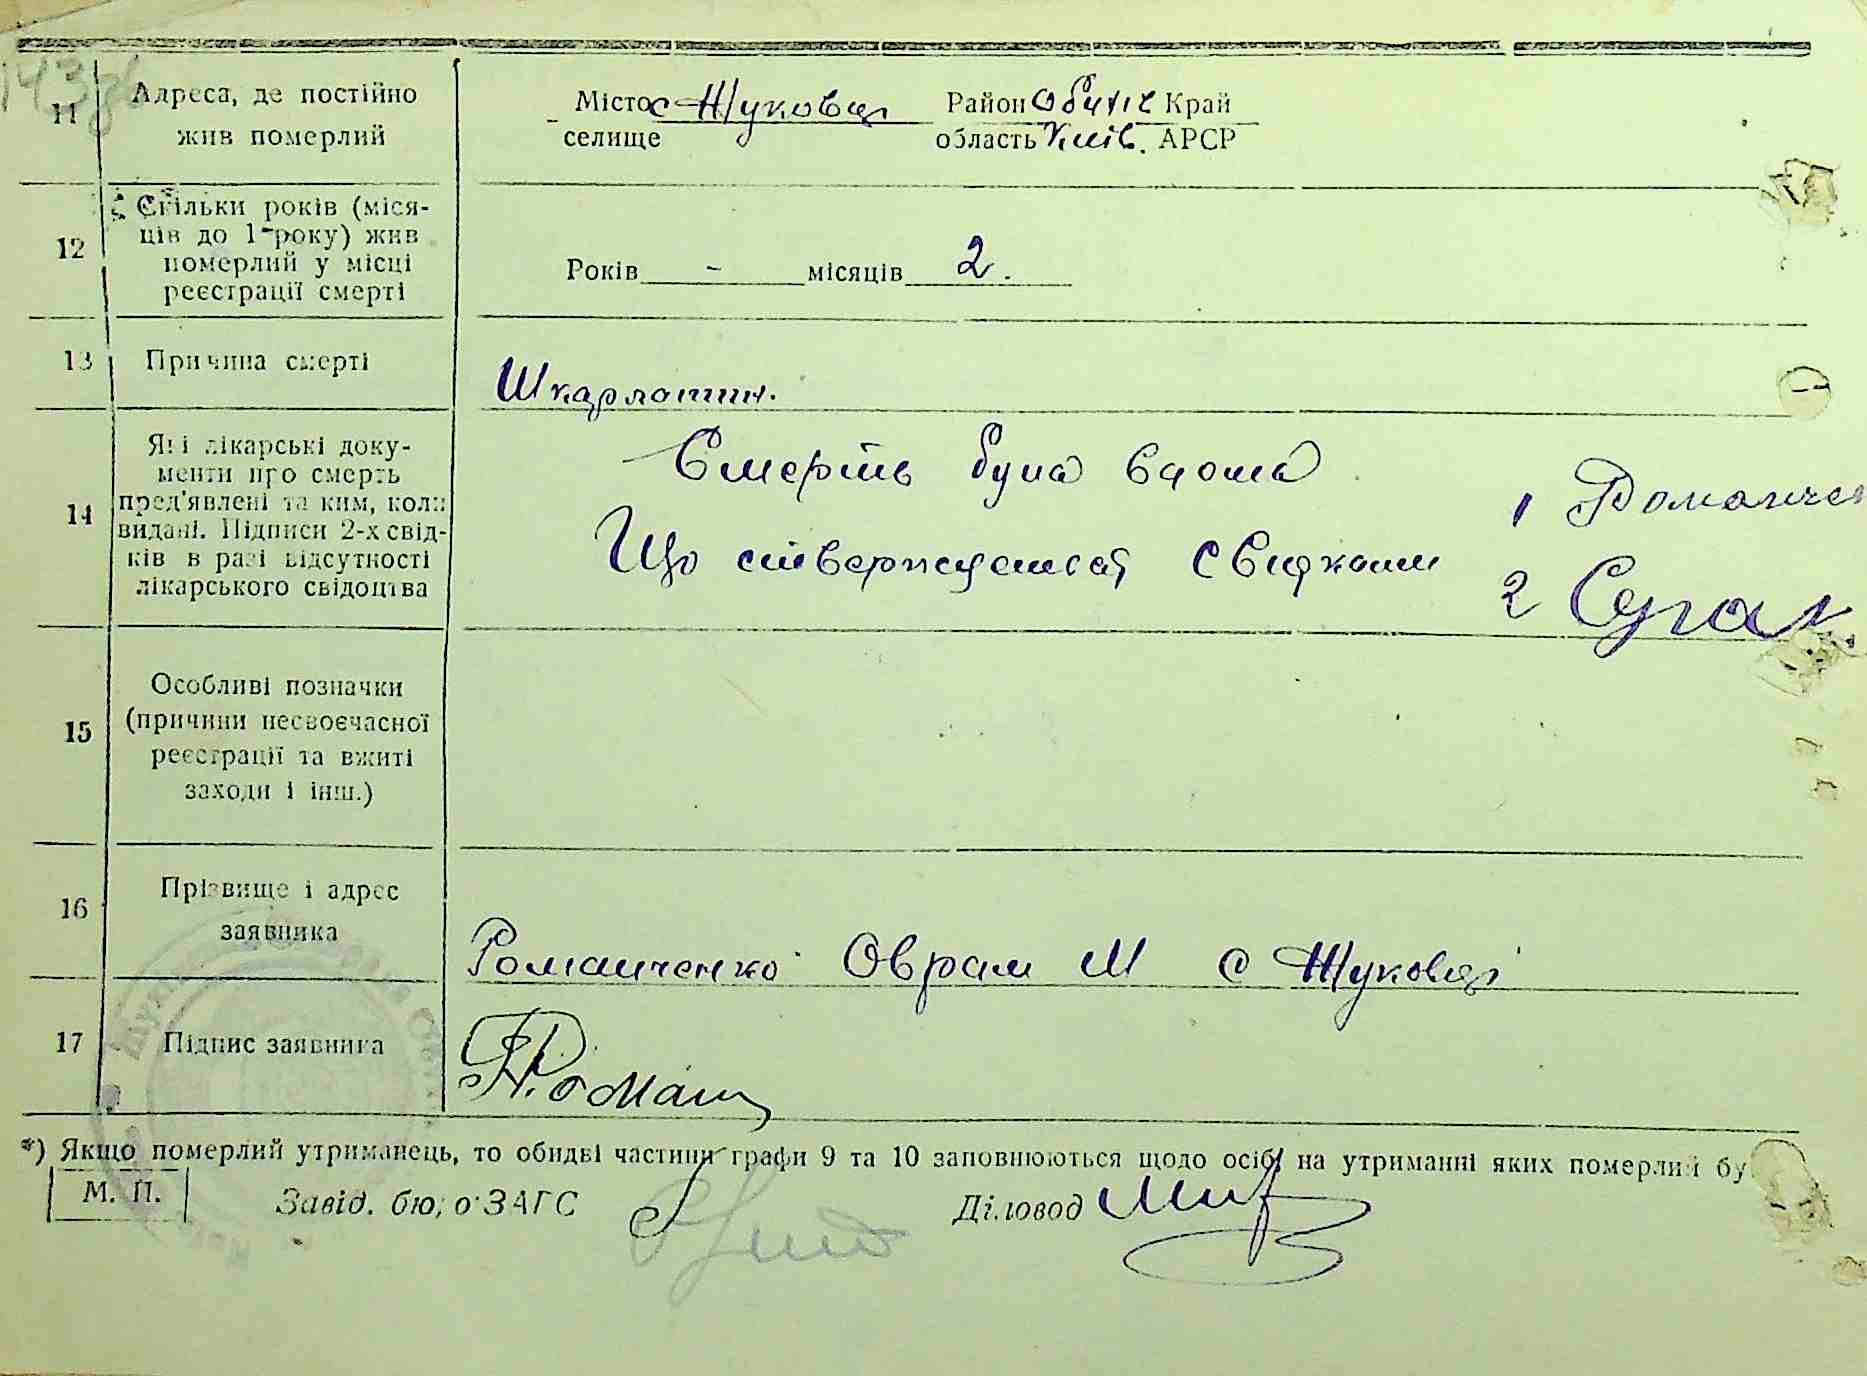 143
11
Адреса, де постійно
жив померлий
Місто с Жуковці Район Обухів Край
селище область Київ. АРСР
12
Скільки років (міся-
ців до 1 року) жив
померлий у місці
реєстрації смерті
Років - місяців 2.
13
Причина смерті
Шкарлатин.
14
Які лікарські доку-
менти про смерть
пред'явлені та ким, коли
видані. Підписи 2-х свід-
ків в разі відсутності
лікарського свідоцтва
Смерть була вдома
Що стверджується свидками
1 Романчен
2
15
Особливі позначки
(причини несвоєчасної
реєстрації та вжиті
заходи і інш.)
16
Прізвище і адрес
заявника
Романченко Оврам М с Жуковці
17
Підпис заявника
Романч
*) Якщо померлий утриманець, то обидві частини графи 9 та 10 заповнюються щодо осіб, на утриманні яких померлий бу
М. П.
Завід. бюро ЗАГС
Діловод